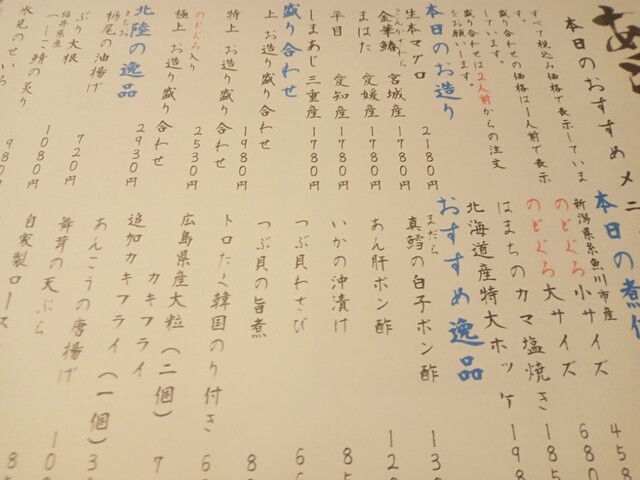 本日のおすすめメニ
すべて税込み価格で表示していま
す。
盛り合わせの価格は1人前で表示
しています。
盛り合わせは2人前からの注文
をお願いします。
本日のお造り
生本マグロ 2180円
金華鯖 宮城産 1780円
まはた 愛媛産 1780円
平目 愛知産 1780円
しまあじ 三重産 1780円
盛り合わせ
上 お造り盛り合わせ 1980円
特上 お造り盛り合わせ 2530円
のどぐろ入り
極上 お造り盛り合わせ 2930円
北陸の逸品
栃尾の油揚げ 720円
ぶり大根 1080円
福井県産
へしこ 鯖の炙り 980円
氷見のせいろ
本日の煮付
新潟県糸魚川市産
のどぐろ 小サイズ 680
のどぐろ 大サイズ 185
はまちのカマ塩焼き
北海道産特大ホッケ 198
おすすめ逸品
まだら
真鱈の白子ポン酢 13
あん肝ポン酢 12
いかの沖漬け 8
つぶ貝わさび
つぶ貝の旨煮 8
トロたく韓国のり付き 6
広島県産大粒(二個)
カキフライ 7
追加カキフライ(一個) 3
あんこうの唐揚げ 10
舞茸の天ぷら
自家製ロース